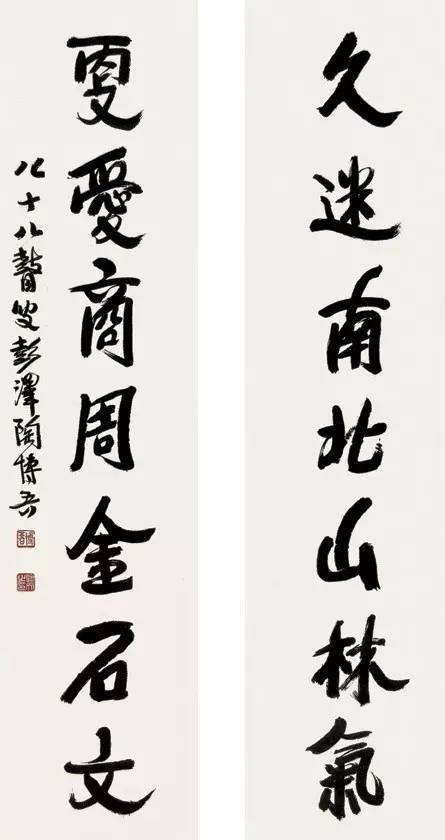 久迷南北山林氣
更愛商周金石文
八十八瞽叟彭澤陶博吾